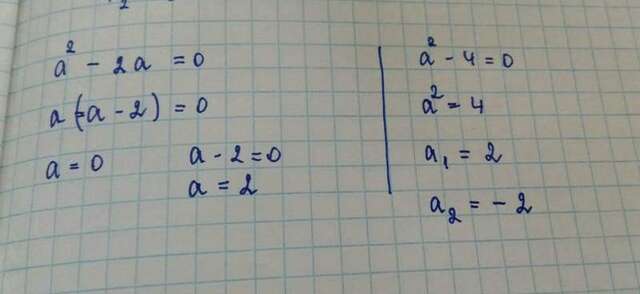 a² - 2a = 0
a (a - 2) = 0
a = 0    a - 2 = 0
a = 2
a² - 4 = 0
a² = 4
a₁ = 2
a₂ = - 2